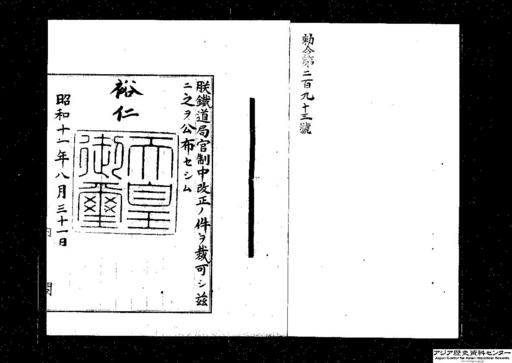 勅令第二百九十三號
朕鐵道局官制中改正ノ件ヲ裁可シ茲
ニ之ヲ公布セシム
裕仁
天皇
御璽
昭和十一年八月三十一日
内閣
アジア歴史資料センター
Japan Center for Asian Historical Records